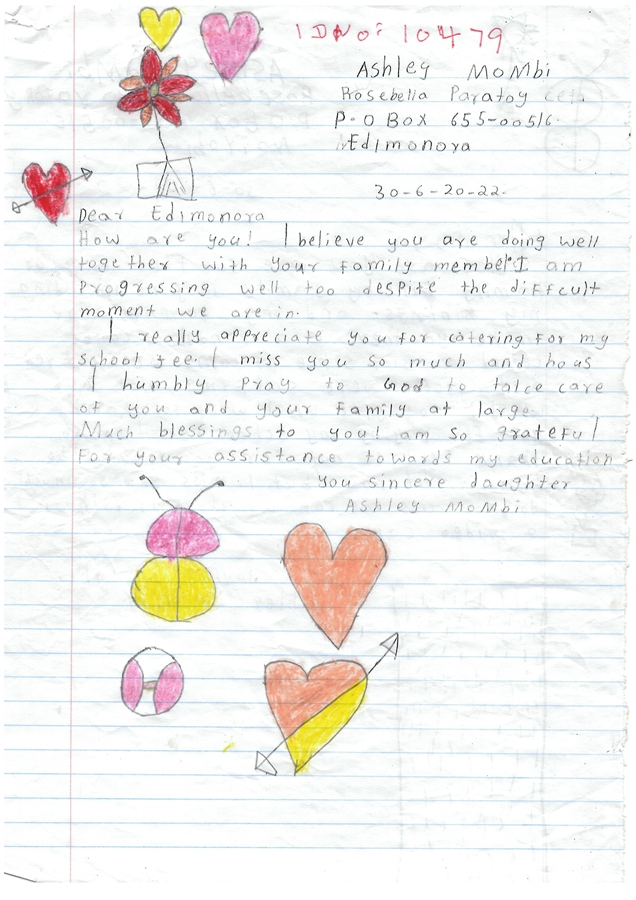 IDNO: 10479
Ashley MoMbi
Rosebella Paratoy
P.O Box 655-00516.
Edimonora
30-6-20-22.
Dear Edimonora
How are you! I believe you are doing well
together with your family member I am
Progressing well too despite the diffcult
moment we are in.
I really appreciate you for catering for my
school fee. I miss you so much and
I humbly pray to God to take care
of you and your family at large.
Much blessings to you! am so grateful
For your assistance towards my education
you sincere daughter
Ashley MoMbi